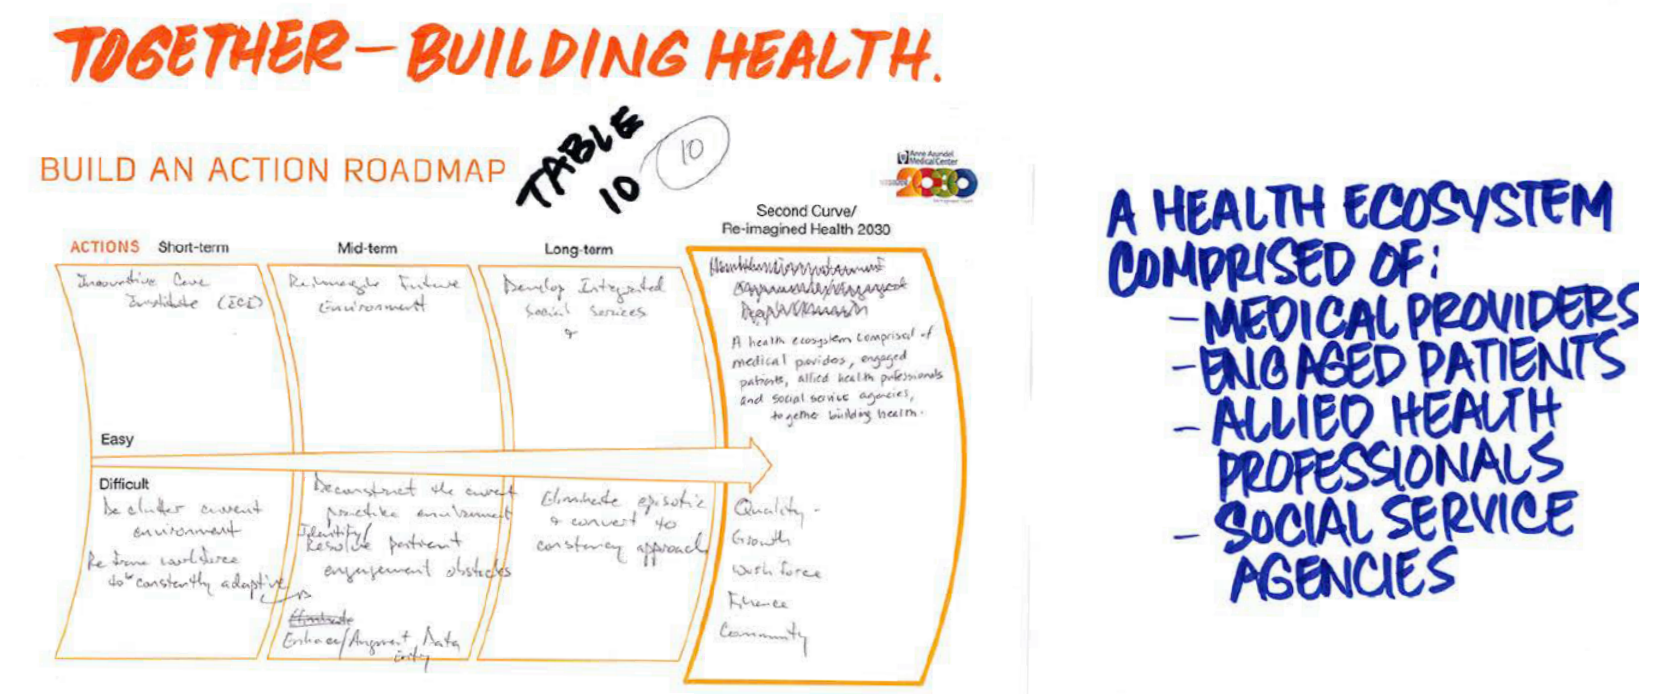 TOGETHER - BUILDING HEALTH.
TABLE
10
10
BUILD AN ACTION ROADMAP
Anne Arundel
Medical Center
2030
Second Curve/
Re-imagined Health 2030
ACTIONS Short-term
Mid-term
Long-term
Innovative Care
Institute (ICI)
Reimagine Future
Environment
Develop Integrated
Social Services
&
A health ecosystem comprised of
medical provides, engaged
patients, allied health professionals
and social service agencies,
together building health.
Easy
Difficult
De clutter current
environment
Re train workforce
to constantly adaptive
Deconstruct the current
practice environment
Identify/
Resolve patient
engagement obstacles
Enhance/Augment Data
Eliminate episodic
& convert to
constancy approach
Quality -
Growth
Workforce
Finance
Community
A HEALTH ECOSYSTEM
COMPRISED OF:
- MEDICAL PROVIDERS
- ENGAGED PATIENTS
- ALLIED HEALTH
PROFESSIONALS
- SOCIAL SERVICE
AGENCIES